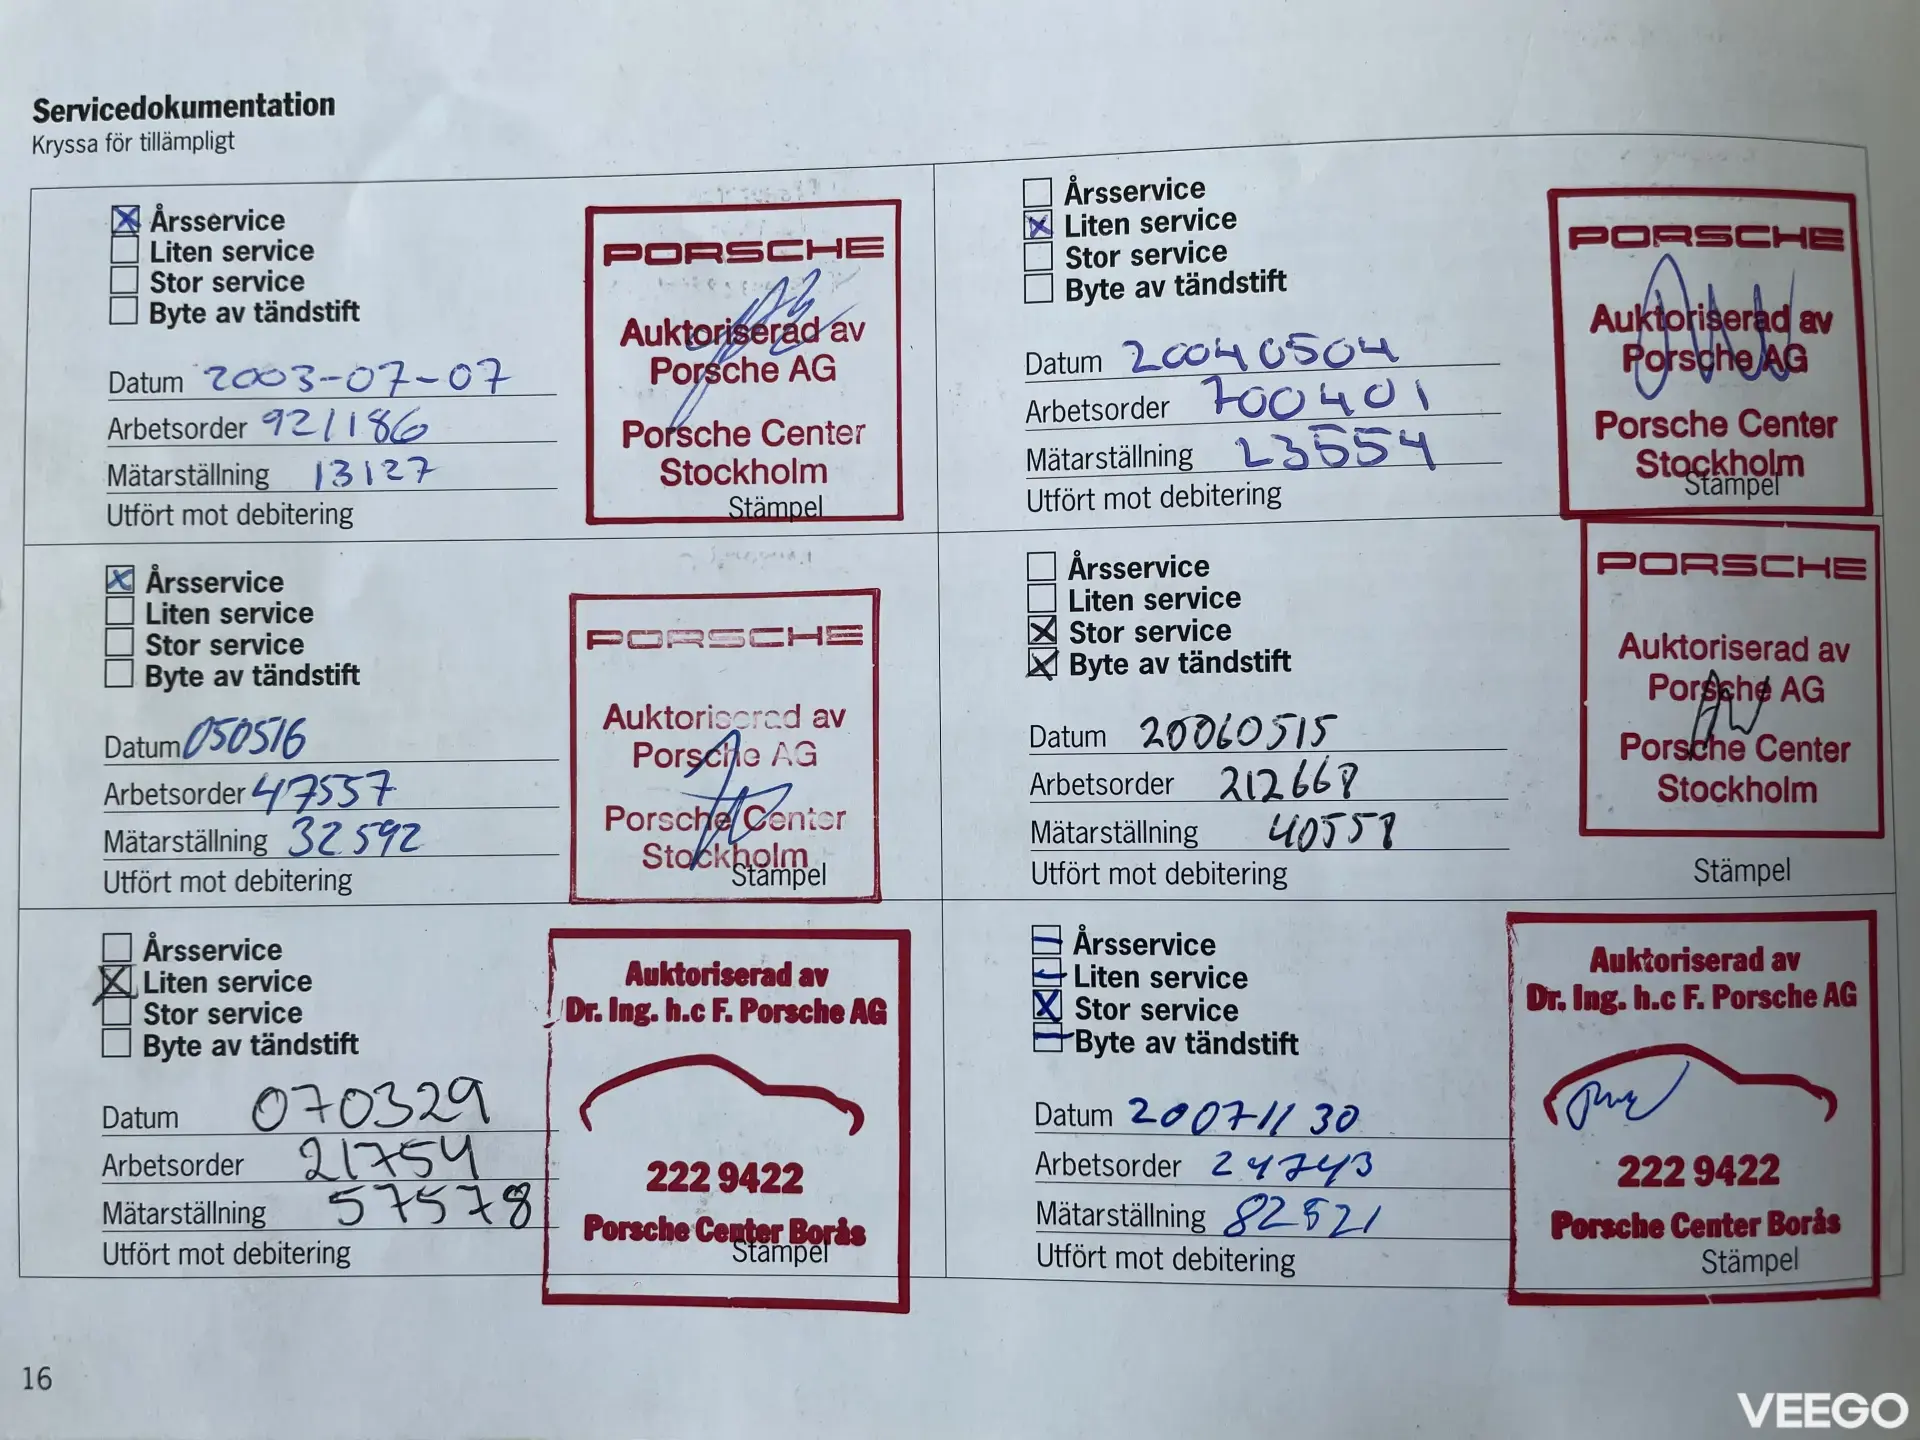 Servicedokumentation
Kryssa för tillämpligt
Årsservice
Liten service
Stor service
Byte av tändstift
Datum 2003-07-07
Arbetsorder 921186
Mätarställning 13127
Utfört mot debitering
PORSCHE
Auktoriserad av
Porsche AG
Porsche Center
Stockholm
Stämpel
Årsservice
Liten service
Stor service
Byte av tändstift
Datum 20040504
Arbetsorder 700401
Mätarställning 23554
Utfört mot debitering
PORSCHE
Auktoriserad av
Porsche AG
Porsche Center
Stockholm
Stämpel
Årsservice
Liten service
Stor service
Byte av tändstift
Datum 050516
Arbetsorder 47557
Mätarställning 32592
Utfört mot debitering
PORSCHE
Auktoriserad av
Porsche AG
Porsche Center
Stockholm
Stämpel
Årsservice
Liten service
Stor service
Byte av tändstift
Datum 20060515
Arbetsorder 212668
Mätarställning 40558
Utfört mot debitering
PORSCHE
Auktoriserad av
Porsche AG
Porsche Center
Stockholm
Stämpel
Årsservice
Liten service
Stor service
Byte av tändstift
Datum 070329
Arbetsorder 21754
Mätarställning 57578
Utfört mot debitering
Auktoriserad av
Dr. Ing. h.c F. Porsche AG
222 9422
Porsche Center Borås
Stämpel
Årsservice
Liten service
Stor service
Byte av tändstift
Datum 20071130
Arbetsorder 24743
Mätarställning 82521
Utfört mot debitering
Auktoriserad av
Dr. Ing. h.c F. Porsche AG
222 9422
Porsche Center Borås
Stämpel
16
VEEGO